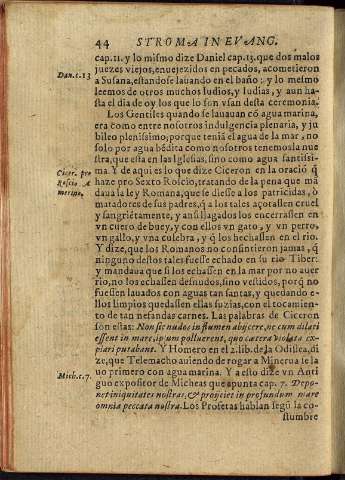 44 STROMA IN EVANG.
cap. 11. y lo mismo dize Daniel cap. 13. que dos malos
juezes viejos, enuejezidos en pecados, acometieron
Dan. c. 13
a Susana, estandose lauando en el baño: y lo mesmo
leemos de otros muchos Iudios, y Iudias, y aun has-
ta el dia de oy los que lo son vsan desta ceremonia.
Los Gentiles quando se lauauan cõ agua marina,
era como entre nosotros indulgencia plenaria, y ju
bileo plenissimo; porque teniã el agua de la mar, no
solo por agua bẽdita como nosotros tenemos la nue
stra, que esta en las Iglesias, sino como agua santissi-
ma. Y de aqui es lo que dize Ciceron en la oraciõ q̃
Cicer. pro
Roscio A
merino.
haze pro Sexto Roscio, tratando de la pena que mã
daua la ley Romana, que se diesse a los patricidas, ò
matadores de sus padres, q̃ a los tales açotassen cruel
y sangriẽtamente, y ansi llagados los encerrassen en
vn cuero de buey, y con ellos vn gato, y vn perro,
vn gallo, y vna culebra, y q̃ los hechassen en el rio.
Y dize, que los Romanos no consintieron jamas, q̃
ninguno destos tales fuesse echado en su rio Tiber:
y mandaua que si los echassen en la mar por no auer
rio, no los echassen desnudos, sino vestidos, porq̃ no
fuessen lauados con aguas tan santas, y quedando e-
llos limpios quedassen ellas suzias, con el tocamien-
to de tan nefandas carnes. Las palabras de Ciceron
son estas: Non sic nudos in flumen abijcere, ne cum delati
essent in mare, ipsum polluerent, quo cætera violata ex-
piari putabant. Y Homero en el 2. lib. de la Odissea, di-
ze, que Telemacho auiendo de rogar a Minerua se la
uo primero con agua marina. Y a esto dize vn Anti
Mich. c. 7.
guo expositor de Micheas que apunta cap. 7. Depo-
net iniquitates nostras, & proijciet in profundum mare
omnia peccata nostra. Los Profetas hablan segũ la co-
stumbre